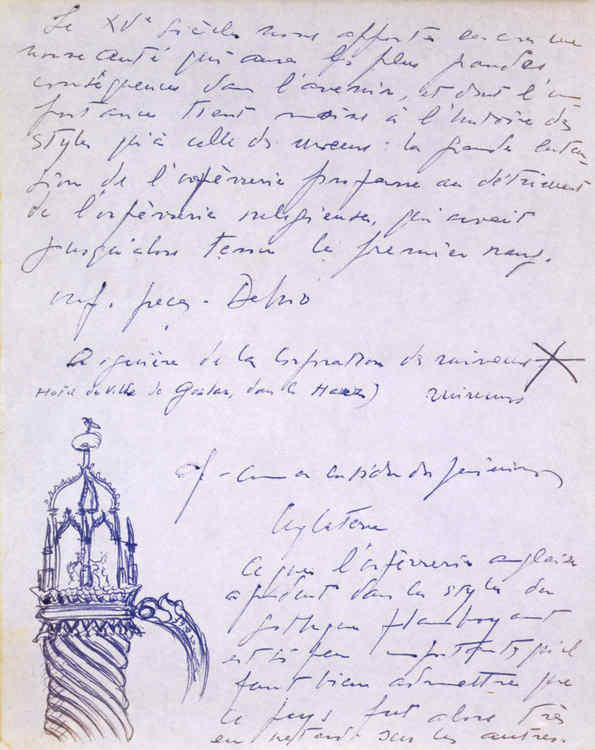 Le XVe siècle nous apporte encore une
nouveauté qui aura les plus grandes
conséquences dans l'avenir, et dont l'im
portance tient moins à l'histoire des
styles qu'à celle des moeurs : la grande exten
sion de l'orfèvrerie profane au détriment
de l'orfèvrerie religieuse, qui avait
jusqu'alors tenu le premier rang.
Dehio
Aiguière de la Corporation des mineurs
Hotel de Ville de Goslar, dans le Harz)
mineurs
Angleterre
Ce que l'orfèvrerie anglaise
a produit dans le style du
gothique flamboyant
est si peu important qu'il
faut bien admettre que
ce pays fut alors très
en retard sur les autres.